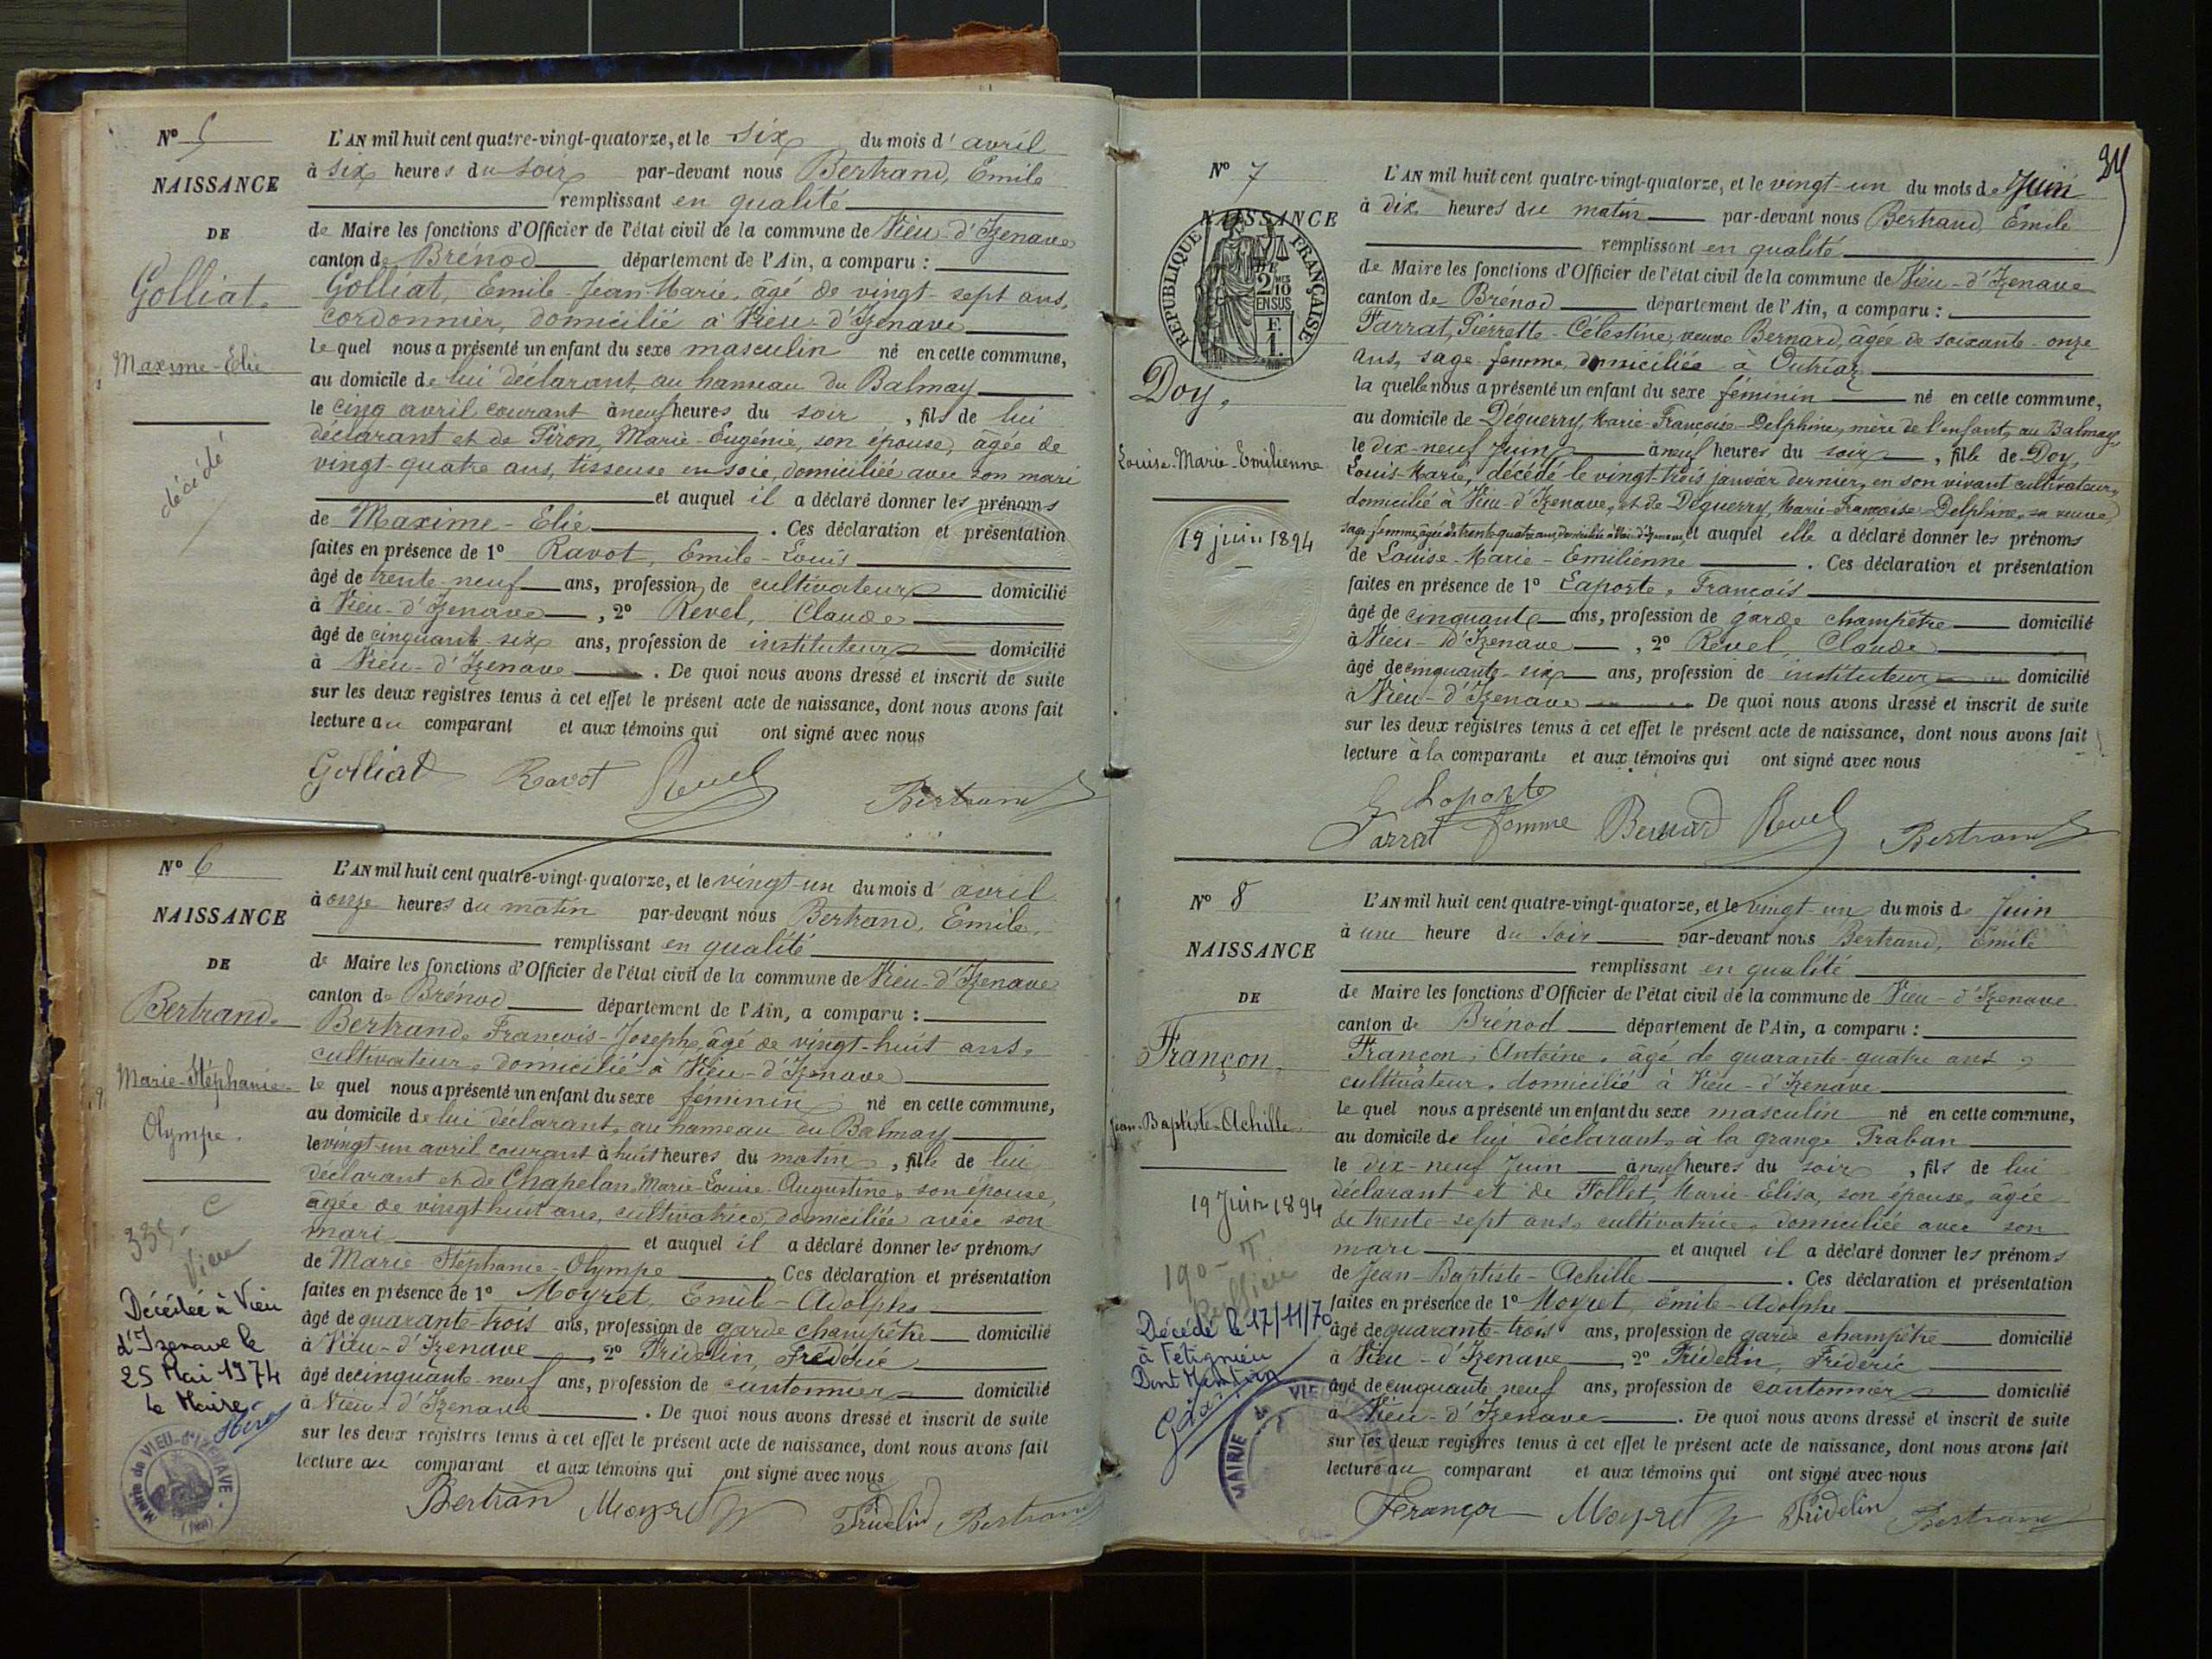 N° 5
NAISSANCE
DE
Golliat.
Maxime-Elie
décédé
L'AN mil huit cent quatre-vingt-quatorze, et le six du mois d'avril
à six heures du soir par-devant nous Bertrand, Emile
remplissant en qualité
de Maire les fonctions d'Officier de l'état civil de la commune de Vieu-d'Izenave
canton de Brénod département de l'Ain, a comparu :
Golliat, Emile-Jean-Marie, âgé de vingt-sept ans,
cordonnier, domicilié à Vieu-d'Izenave
le quel nous a présenté un enfant du sexe masculin né en cette commune,
au domicile de lui déclarant, au hameau du Balmay
le cinq avril courant à neuf heures du soir, fils de lui
déclarant et de Piron, Marie-Eugénie, son épouse, âgée de
vingt-quatre ans, tisseuse en soie, domiciliée avec son mari
et auquel il a déclaré donner les prénoms
de Maxime-Elie. Ces déclaration et présentation
faites en présence de 1° Ravot, Emile-Louis
âgé de trente-neuf ans, profession de cultivateur domicilié
à Vieu-d'Izenave, 2° Revel, Claude
âgé de cinquante-six ans, profession de instituteur domicilié
à Vieu-d'Izenave. De quoi nous avons dressé et inscrit de suite
sur les deux registres tenus à cet effet le présent acte de naissance, dont nous avons fait
lecture au comparant et aux témoins qui ont signé avec nous
Golliat Ravot Revel Bertrand
N° 6
NAISSANCE
DE
Bertrand.
Marie-Stéphanie-
Olympe.
335- C
Vieu
Décédée à Vieu
d'Izenave le
25 Mai 1974
Le Maire
Mairie de VIEU-D'IZENAVE (Ain)
L'AN mil huit cent quatre-vingt-quatorze, et le vingt-un du mois d'avril
à onze heures du matin par-devant nous Bertrand, Emile,
remplissant en qualité
de Maire les fonctions d'Officier de l'état civil de la commune de Vieu-d'Izenave
canton de Brénod département de l'Ain, a comparu :
Bertrand, François-Joseph, âgé de vingt-huit ans,
cultivateur, domicilié à Vieu-d'Izenave
le quel nous a présenté un enfant du sexe féminin né en cette commune,
au domicile de lui déclarant, au hameau du Balmay
le vingt-un avril courant à huit heures du matin, fille de lui
déclarant et de Chapelan, Marie-Louise-Augustine, son épouse,
âgée de vingt huit ans, cultivatrice, domiciliée avec son
mari et auquel il a déclaré donner les prénoms
de Marie-Stéphanie-Olympe. Ces déclaration et présentation
faites en présence de 1° Moyret, Emile-Adolphe
âgé de quarante-trois ans, profession de garde champêtre domicilié
à Vieu-d'Izenave, 2° Fridelin, Frédéric
âgé de cinquante-neuf ans, profession de cantonnier domicilié
à Vieu-d'Izenave. De quoi nous avons dressé et inscrit de suite
sur les deux registres tenus à cet effet le présent acte de naissance, dont nous avons fait
lecture au comparant et aux témoins qui ont signé avec nous
Bertran Moyret Fridelin Bertrand
34
N° 7
NAISSANCE
DE
RÉPUBLIQUE FRANÇAISE
2/10 MES
EN SUS
F.
1.
Doy,
Louise-Marie-Emilienne
19 juin 1894
L'AN mil huit cent quatre-vingt-quatorze, et le vingt-un du mois de Juin
à dix heures du matin par-devant nous Bertrand, Emile
remplissant en qualité
de Maire les fonctions d'Officier de l'état civil de la commune de Vieu-d'Izenave
canton de Brénod département de l'Ain, a comparu :
Farrat, Pierrette-Célestine, veuve Bernard, âgée de soixante-onze
ans, sage-femme, domiciliée à Outriaz
la quelle nous a présenté un enfant du sexe féminin né en cette commune,
au domicile de Deguerry, Marie-Françoise-Delphine, mère de l'enfant, au Balmay
le dix-neuf Juin à neuf heures du soir, fille de Doy,
Louis-Marie, décédé le vingt-trois janvier dernier, en son vivant cultivateur,
domicilié à Vieu-d'Izenave, et de Deguerry, Marie-Françoise-Delphine, sa veuve,
sage-femme, âgée de trente-quatre ans, domiciliée à Vieu-d'Izenave, et auquel elle a déclaré donner les prénoms
de Louise-Marie-Emilienne. Ces déclaration et présentation
faites en présence de 1° Laporte, François
âgé de cinquante ans, profession de garde champêtre domicilié
à Vieu-d'Izenave, 2° Revel, Claude
âgé de cinquante-six ans, profession de instituteur domicilié
à Vieu-d'Izenave. De quoi nous avons dressé et inscrit de suite
sur les deux registres tenus à cet effet le présent acte de naissance, dont nous avons fait
lecture à la comparante et aux témoins qui ont signé avec nous
Laporte
Farrat femme Bernard Revel Bertrand
N° 8
NAISSANCE
DE
Françon,
Jean-Baptiste-Achille.
19 Juin 1894
190- T
Ruffieu
Décédé le 17/11/70
MAIRIE de VIEU
L'AN mil huit cent quatre-vingt-quatorze, et le vingt-un du mois de Juin
à une heure du soir par-devant nous Bertrand, Emile
remplissant en qualité
de Maire les fonctions d'Officier de l'état civil de la commune de Vieu-d'Izenave
canton de Brénod département de l'Ain, a comparu :
Françon, Antoine, âgé de quarante-quatre ans,
cultivateur, domicilié à Vieu-d'Izenave
le quel nous a présenté un enfant du sexe masculin né en cette commune,
au domicile de lui déclarant, à la grange Traban
le dix-neuf Juin à neuf heures du soir, fils de lui
déclarant et de Follet, Marie-Elisa, son épouse, âgée
de trente-sept ans, cultivatrice, domiciliée avec son
mari et auquel il a déclaré donner les prénoms
de Jean-Baptiste-Achille. Ces déclaration et présentation
faites en présence de 1° Moyret, Emile-Adolphe
âgé de quarante-trois ans, profession de garde champêtre domicilié
à Vieu-d'Izenave, 2° Fridelin, Frédéric
âgé de cinquante neuf ans, profession de cantonnier domicilié
à Vieu-d'Izenave. De quoi nous avons dressé et inscrit de suite
sur les deux registres tenus à cet effet le présent acte de naissance, dont nous avons fait
lecture au comparant et aux témoins qui ont signé avec nous
Françon Moyret Fridelin Bertrand